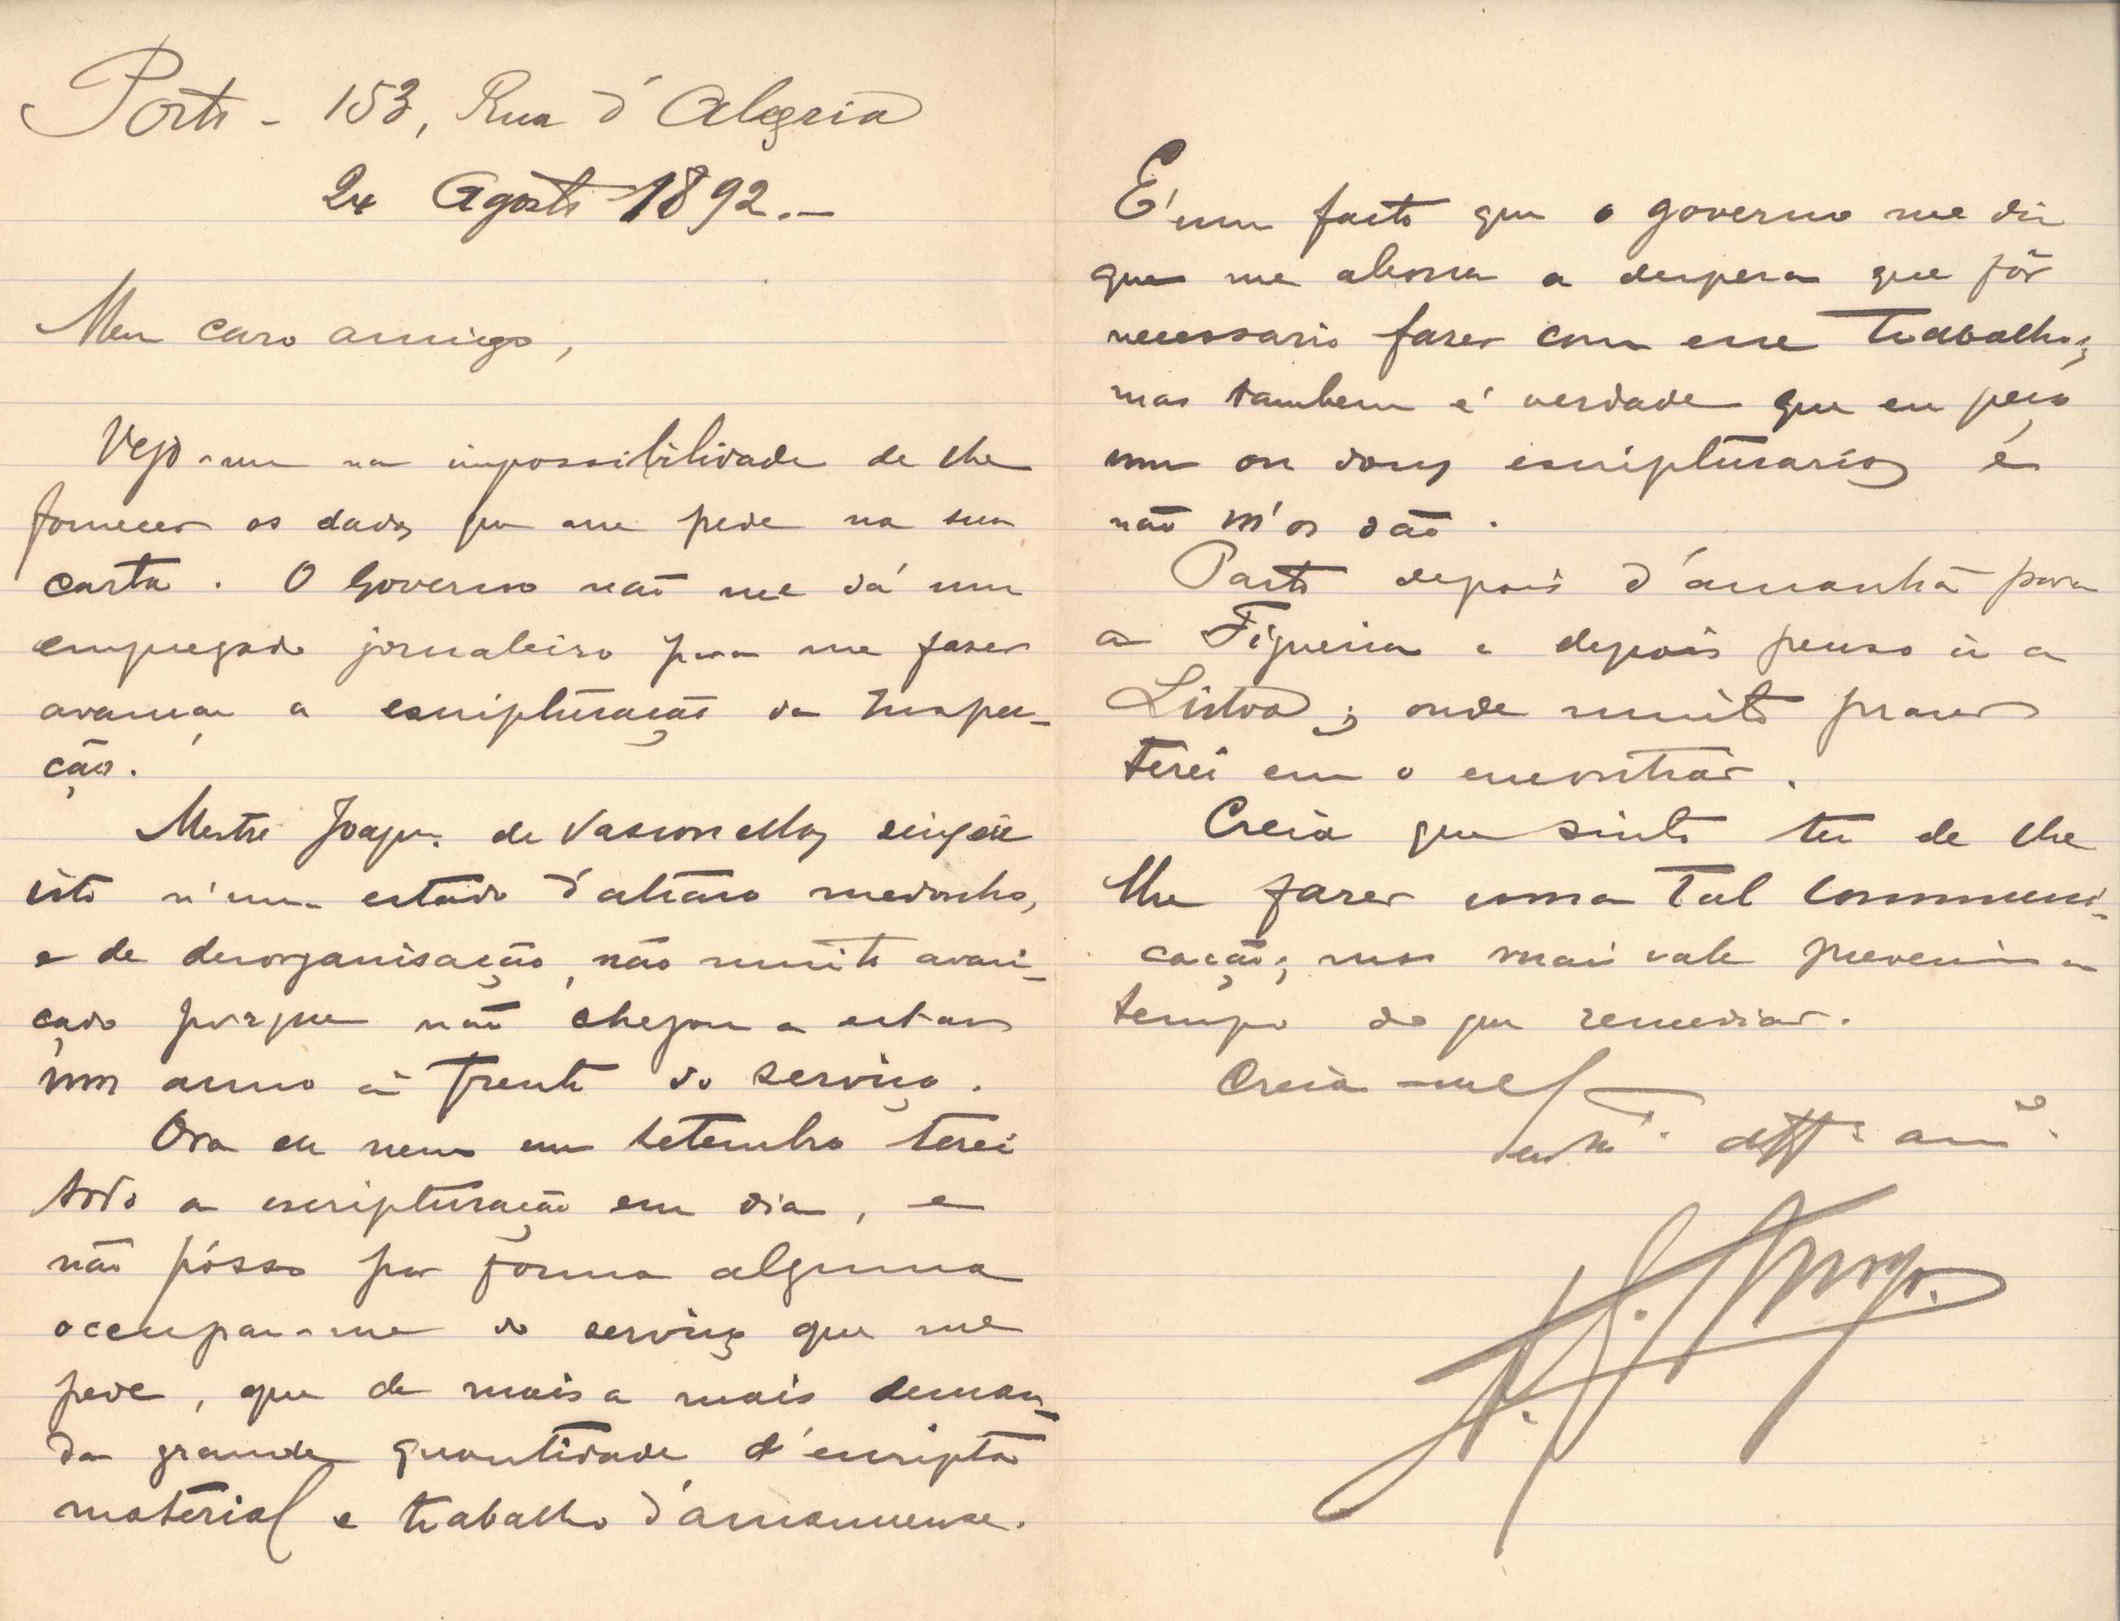 Porto - 153, Rua d'Alegria
24 Agosto 1892.—
Meu caro amigo,
Vejo-me na impossibilidade de lhe
fornecer os dados que me pede na sua
carta. O Governo não me dá um
empregado jornaleiro para me fazer
avançar a escripturação da Inspec-
ção.
Mestre Joaqm. de Vasconcellos
isto n'um estado d'atrazo medonho,
e de desorganisação, não muito avan-
çado porque não chegou a estar
um anno á frente do serviço.
Ora eu nem em setembro terei
toda a escripturação em dia, e
não pósso por forma alguma
occupar-me do serviço que me
pede, que de mais a mais deman-
da grande quantidade d'escripta
material e trabalho d'amanuense.
É um facto que o governo me diz
que me abona a despesa que fôr
necessario fazer com esse trabalho;
mas tambem é verdade que eu peço
um ou dous escripturarios e
não m'os dão.
Parto depois d'ámanhã para
a Figueira e depois penso ir a
Lisboa; onde muito prazer
terei em o encontrar.
Creia que sinto ter de lhe
lhe fazer uma tal communi-
cação; mas mais vale prevenir a
tempo do que remediar.
Creia-me
amº.